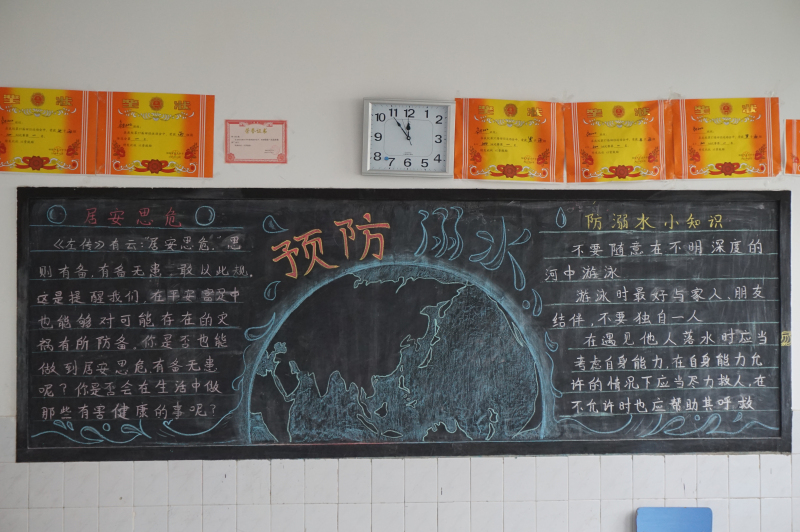 居安思危
《左传》有云:居安思危,思
则有备,有备无患,敢以此规。
这是提醒我们,在平安富足中
也能够对可能存在的灾
祸有所防备,你是否也能
做到居安思危有备无患
呢?你是否会在生活中做
那些有害健康的事呢?
预防溺水
防溺水小知识
不要随意在不明深度的
河中游泳
游泳时最好与家人,朋友
结伴,不要独自一人
在遇见他人落水时应当
考虑自身能力,在自身能力允
许的情况下应当尽力救人,在
不允许时也应帮助其呼救
12
1
2
3
4
5
6
7
8
9
10
11